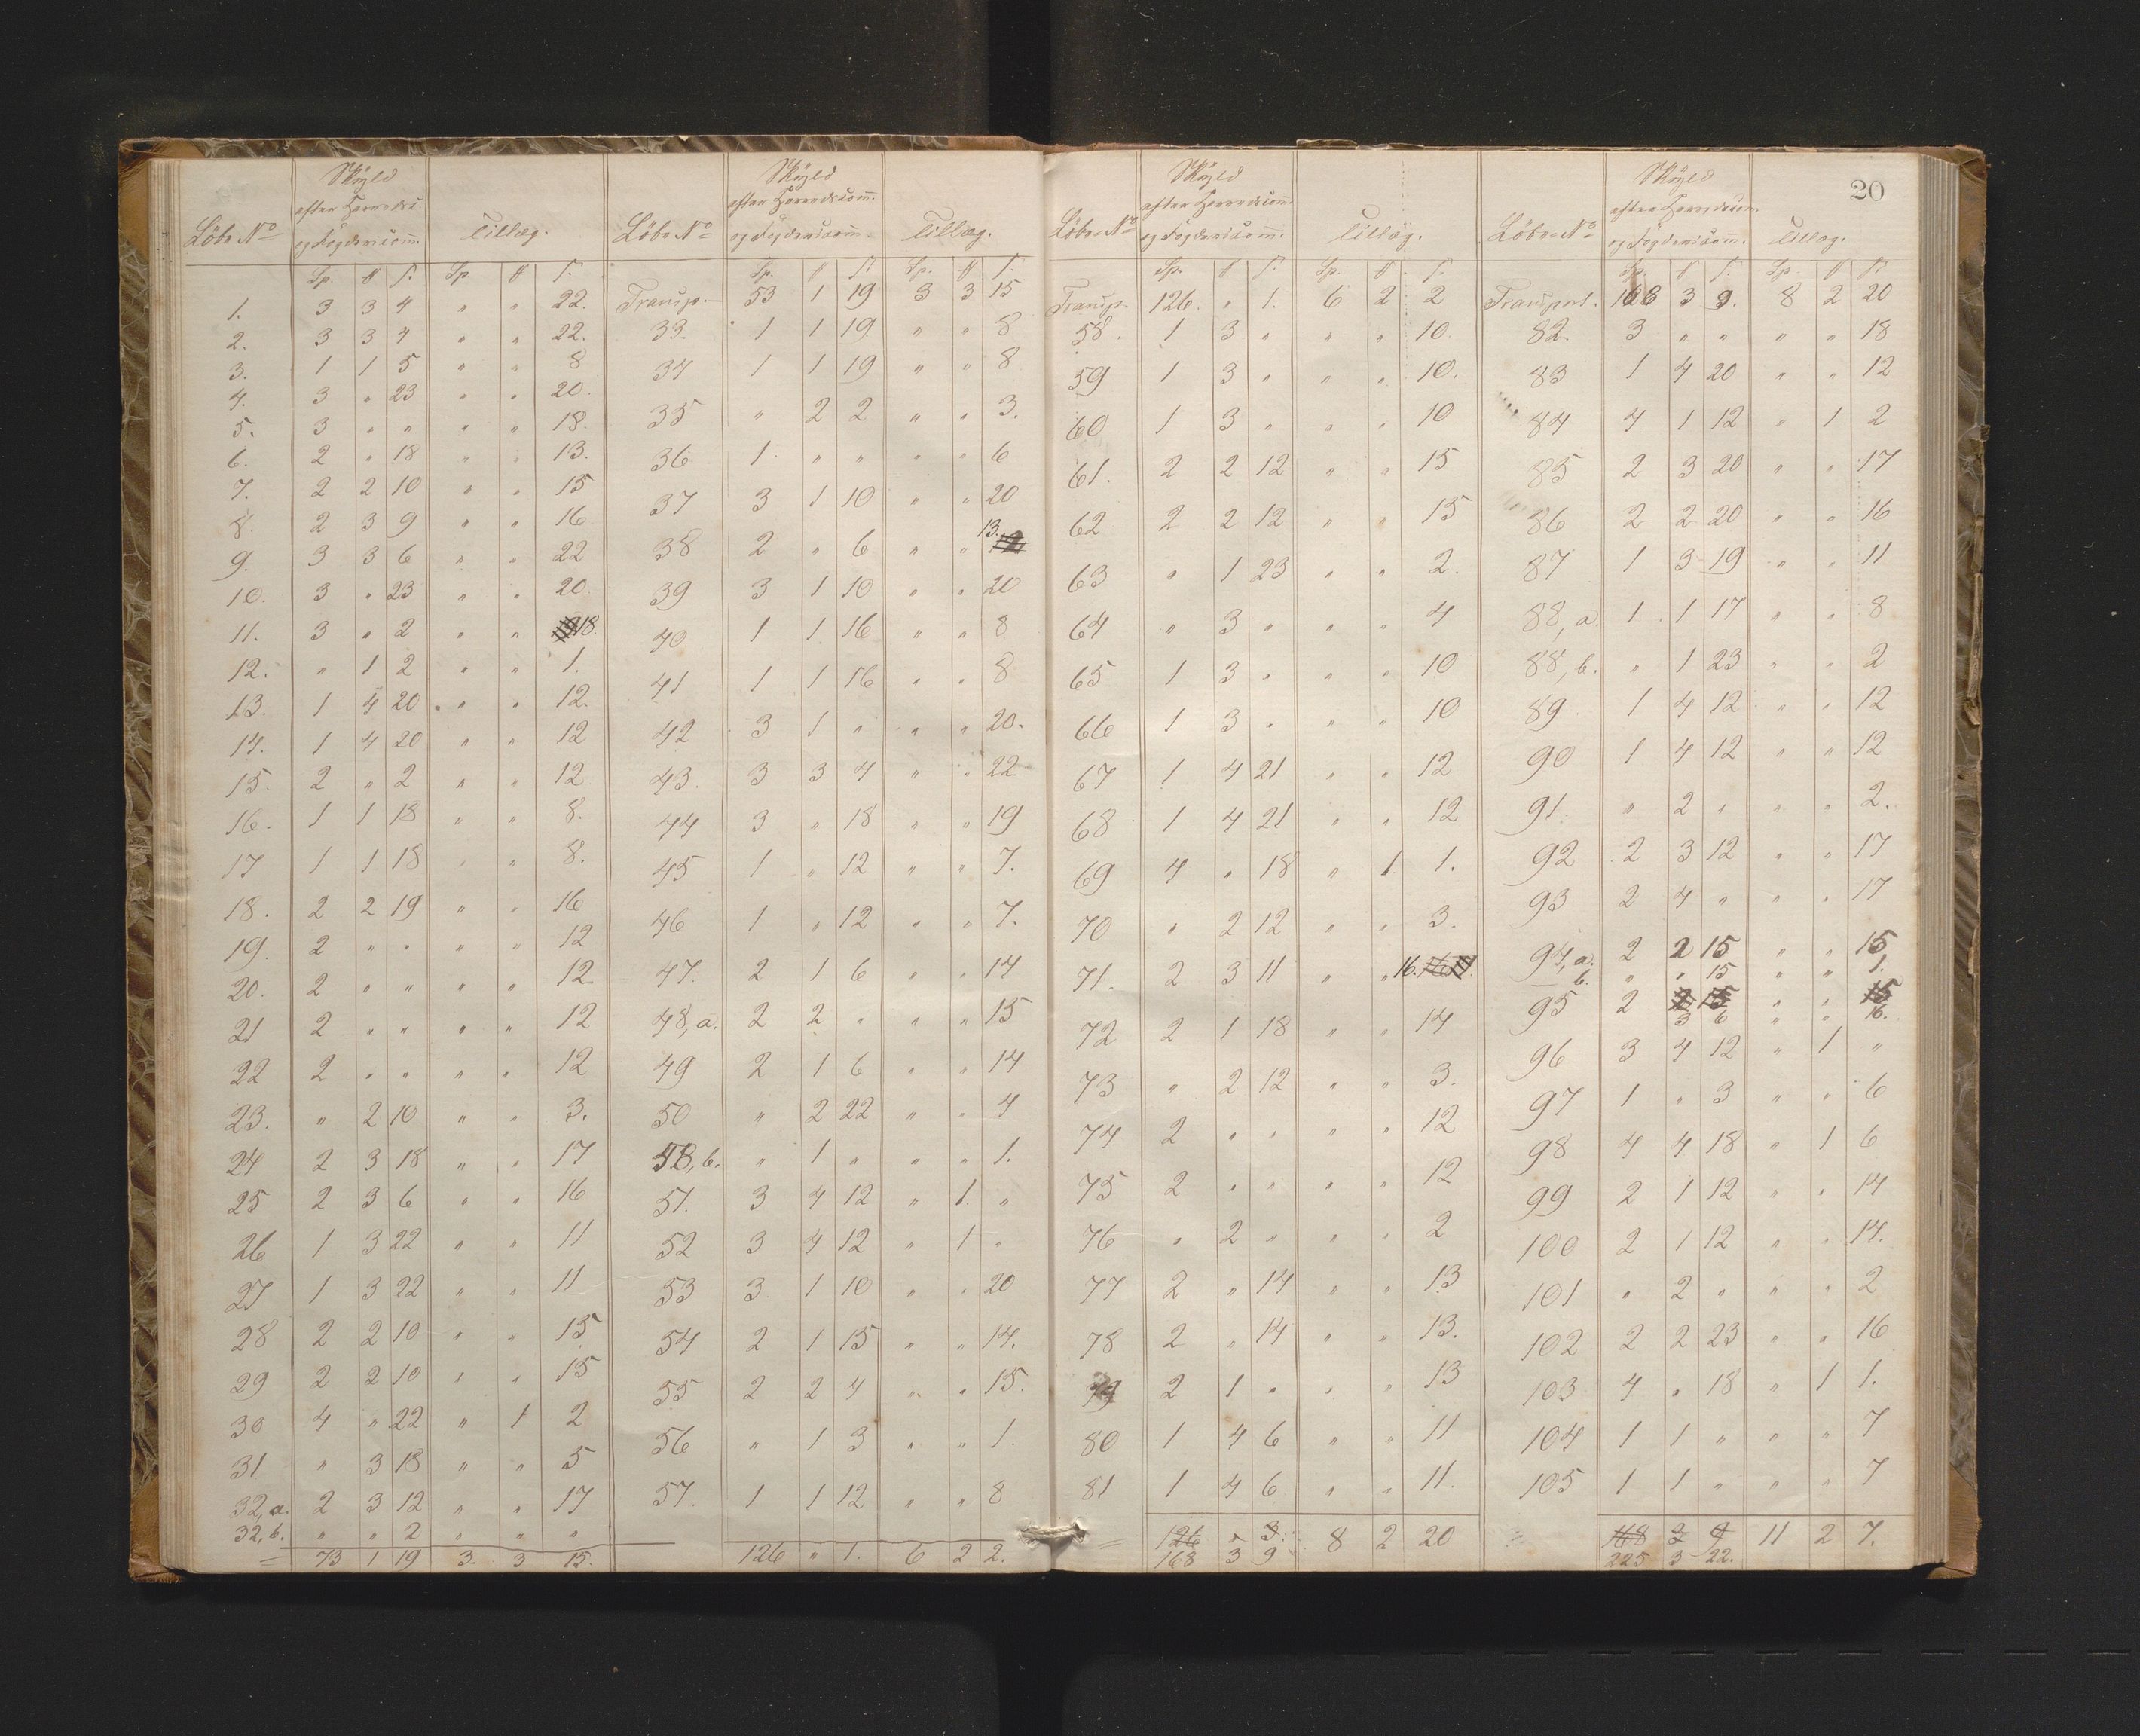 20
Skyld
Löbe No efter Herredscom. Tillæg.
og Fogdericom.
Sp. # s. Sp. # s.
1. 3 3 4 " " 22.
2. 3 3 4 " " 22.
3. 1 1 5 " " 8
4. 3 " 23 " " 20.
5. 3 " " " " 18.
6. 2 " 18 " " 13.
7. 2 2 10 " " 15
8. 2 3 9 " " 16
9. 3 3 6 " " 22
10. 3 " 23 " " 20
11. 3 " 2 " " 18.
12. " 1 2 " " 1.
13. 1 4 20 " " 12.
14. 1 4 20 " " 12
15. 2 " 2 " " 12
16. 1 1 18 " " 8.
17 1 1 18 " " 8.
18. 2 2 19 " " 16
19. 2 " " " " 12
20. 2 " " " " 12.
21 2 " " " " 12
22 2 " " " " 12
23. " 2 10 " " 3.
24 2 3 18 " " 17
25 2 3 6 " " 16
26 1 3 22 " " 11
27 1 3 22 " " 11
28 2 2 10 " " 15
29 2 2 10 " " 15
30 4 " 22 " 1 2
31 " 3 18 " " 5
32, a. 2 3 12 " " 17
32, b. " " 2 " " "
= 73 1 19 3. 3 15.
Skyld
Löbe No efter Herredscom. Tillæg.
og Fogdericom.
Sp. # s. Sp. # s.
Transp. 53 1 19 3 3 15
33. 1 1 19 " " 8
34 1 1 19 " " 8
35 " 2 2 " " 3.
36 1 " " " " 6
37 3 1 10 " " 20
38 2 " 6 " " 13.
39 3 1 10 " " 20
40 1 1 16 " " 8
41 1 1 16 " " 8
42 3 1 " " " 20.
43. 3 3 4 " " 22
44 3 " 18 " " 19
45 1 " 12 " " 7.
46 1 " 12 " " 7.
47. 2 1 6 " " 14
48, a. 2 2 " " " 15
49 2 1 6 " " 14
50 " 2 22 " " 4
48, b. " 1 " " " 1.
51. 3 4 12 " 1. "
52 3 4 12 " 1 "
53 3 1 10 " " 20
54 2 1 15 " " 14.
55 2 2 4 " " 15.
56 " 1 3 " " 1.
57. 1 1 12 " " 8
126 " 1. 6 2 2.
Skyld
Löbe No efter Herredscom. Tillæg.
og Fogdericom.
Sp. # s. Sp. # s.
Transp. 126. " 1. 6 2 2
58. 1 3 " " " 10.
59 1 3 " " " 10.
60 1 3 " " " 10
61. 2 2 12 " " 15
62 2 2 12 " " 15
63 " 1 23 " " 2.
64 " 3 " " " 4
65 1 3 " " " 10
66 1 3 " " " 10
67 1 4 21 " " 12
68 1 4 21 " " 12
69 4 " 18 " 1 1.
70 " 2 12 " " 3.
71. 2 3 11 " " 16.
72 2 1 18 " " 14
73 " 2 12 " " 3.
74 2 " " " " 12
75 2 " " " " 12
76 " 2 " " " 2
77 2 " 14 " " 13
78 2 " 14 " " 13.
79 2 1 " " " 13
80 1 4 6 " " 11
81 1 4 6 " " 11.
= 126 " 3. 8 2 20
168 3 9
Skyld
Löbe No efter Herredscom. Tillæg.
og Fogdericom.
Sp. # s. Sp. # s.
Transport. 168 3 9. 8 2 20
82. 3 " " " " 18
83 1 4 20 " " 12
84 4 1 12 " 1 2
85 2 3 20 " " 17
86 2 2 20 " " 16
87 1 3 19 " " 11
88, a. 1 1 17 " " 8
88, b. " 1 23 " " 2
89 1 4 12 " " 12
90 1 4 12 " " 12
91. " 2 " " " 2.
92 2 3 12 " " 17
93 2 4 " " " 17
94, a. 2 2 15 " " 15
b. " " 15 " " 1.
95 2 2 15 " " 15
3 6 16.
96 3 4 12 " 1 "
97 1 " 3 " " 6
98 4 4 18 " 1 6
99 2 1 12 " " 14
100 2 1 12 " " 14.
101 " 2 " " " 2
102 2 2 23 " " 16
103 4 " 18 " 1 1.
104 1 1 " " " 7
105 1 1 " " " 7
168 3 9 11 2 7.
225 3 22.